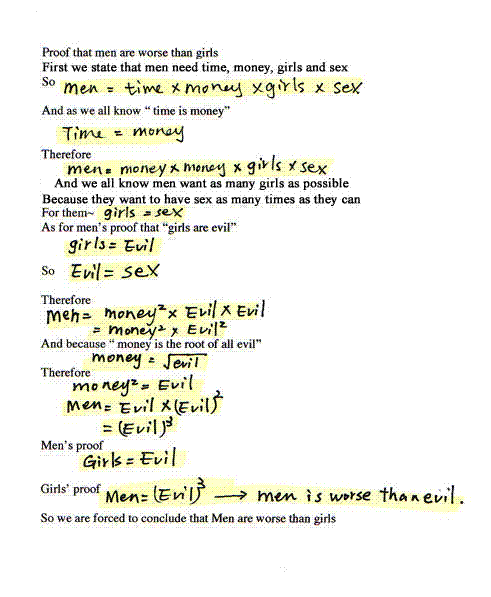 Proof that men are worse than girls
First we state that men need time, money, girls and sex
So men = time x money x girls x sex
And as we all know “ time is money”
Time = money
Therefore
men = money x money x girls x sex
And we all know men want as many girls as possible
Because they want to have sex as many times as they can
For them~ girls = sex
As for men’s proof that “girls are evil”
girls = Evil
So Evil = sex
Therefore
men = money² x Evil x Evil
= money² x Evil²
And because “ money is the root of all evil”
money = √evil
Therefore
money² = Evil
Men = Evil x (Evil)²
= (Evil)³
Men’s proof
Girls = Evil
Girls’ proof Men = (Evil)³ → men is worse than evil.
So we are forced to conclude that Men are worse than girls